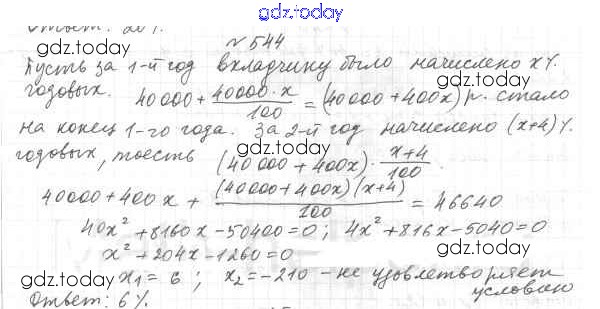 gdz.today
Ответ: 20%.
gdz.today
№ 544
Пусть за 1-й год вкладчику было начислено x%
gdz.today
годовых. 40000 + \frac{40000 \cdot x}{100} = (40000 + 400x) р. стало
gdz.today
на конец 1-го года. За 2-й год начислено (x+4)%
gdz.today
годовых, тоесть (40000 + 400x) · \frac{x+4}{100}.
gdz.today
40000 + 400x + \frac{(40000+400x)(x+4)}{100} = 46640
gdz.today
40x² + 8160x - 50400 = 0; 4x² + 816x - 5040 = 0
x² + 204x - 1260 = 0
gdz.today
x₁ = 6; x₂ = -210 - не удовлетворяет
gdz.today
условию
Ответ: 6%.
gdz.today